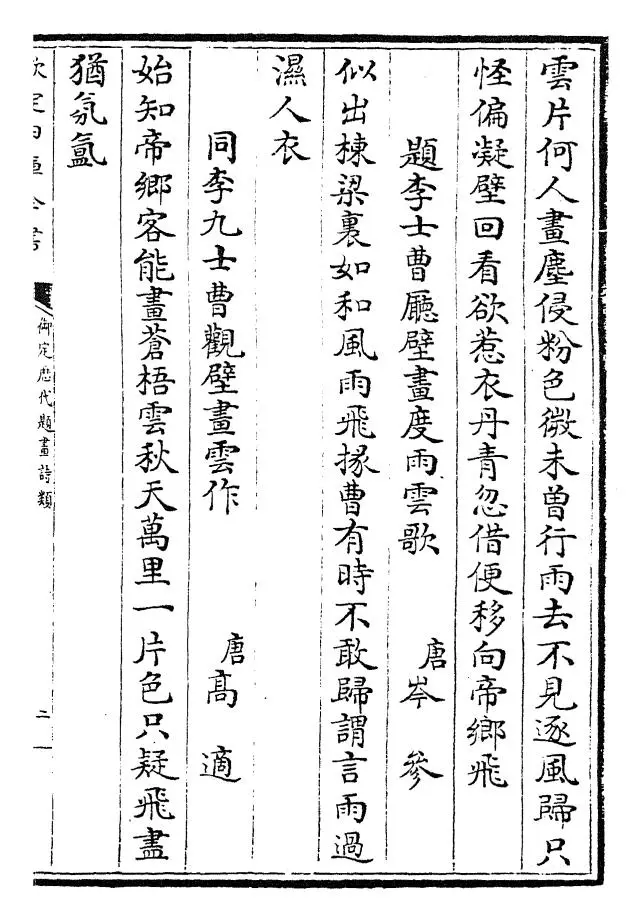 雲片何人畫塵侵粉色微未曾行雨去不見逐風歸只
怪偏凝壁回看欲惹衣丹青忽借便移向帝鄉飛
題李士曹廳壁畫度雨雲歌 唐岑參
似出棟梁裏如和風雨飛掾曹有時不敢歸謂言雨過
濕人衣
同李九士曹觀壁畫雲作 唐高適
始知帝鄉客能畫蒼梧雲秋天萬里一片色只疑飛盡
猶氛氳
欽定四庫全書
御定歷代題畫詩類
二